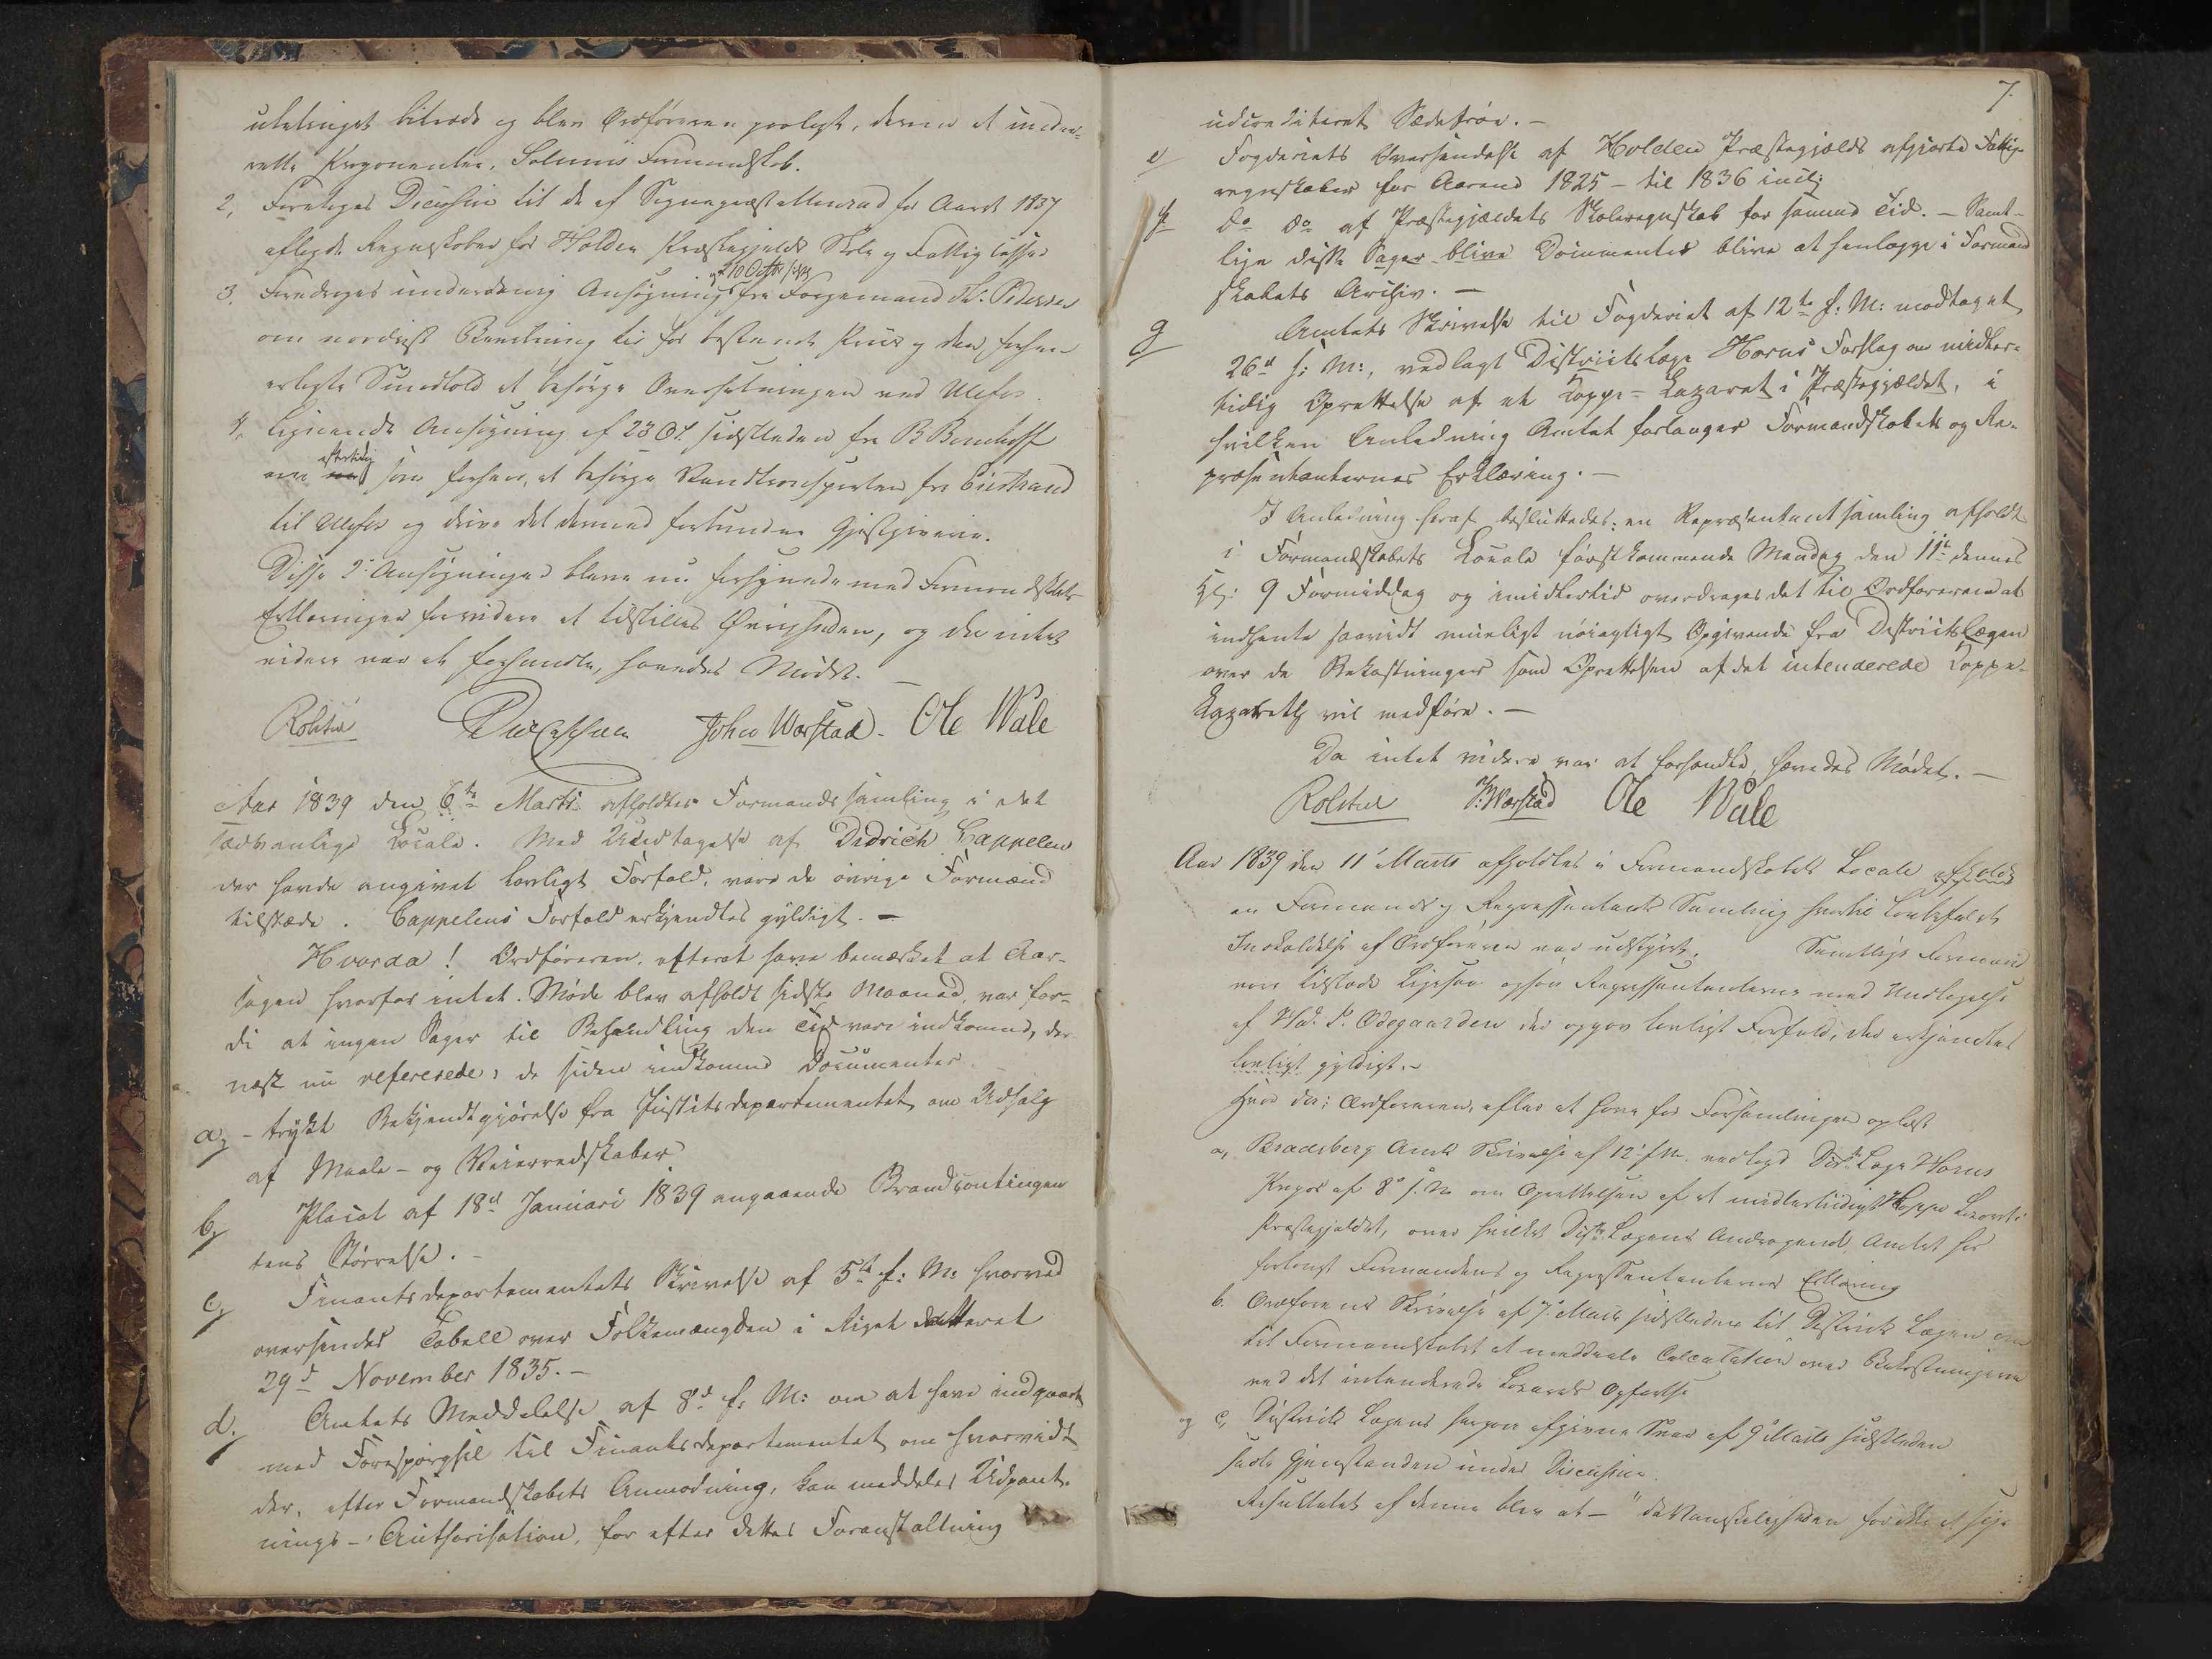 bitraadt og blev Ordføreren paalagt, derom at under-
rette Proponenten, Solums Formandskab.
2, Foretoges Decission til de af Sogneprest Munrad for Aaret 1837
aflagde Regnskaber for Holden Præstegjelds Skole og Fattigcasser
3, Foredroges underdanig Ansøgning fra Færgemand Pedersen
om Bevilning til for bestemt Priis og den forhen
erlagte Sundtold at besørge Oversætningen ved Ulefos.
4, Lignende Ansøgning af 23 Oct. sidstleden fra B Bomhoff
om eftertidig som forhen, at besørge Vandtransporten fra
til Ulefos og drive det dermed forbundne Gjestgiverie.
Disse 2de Ansøgninger bleve nu forsynede med Formandskabets
Erklæringer for videre at tilstilles Øvrigheden, og da intet
videre var at forhandle, hævedes Mødet. —
Rolstad Johan Wærstad. Ole Wale
Aar 1839 den 6te Marts afholdtes Formandssamling i det
sædvanlige Locale. Med Undtagelse af Didrich Cappelen
der havde angivet lovligt Forfald, vare de øvrige Formænd
tilstæde. Cappelens Forfald erkjendtes gyldigt. —
Hvorda! Ordføreren, efterat have bemærket at Aar-
sagen hvorfor intet Møde blev afholdt sidste Maaned, var for-
di at ingen Sager til Behandling den Tid vare indkomne, der-
næst nu refererede: de siden indkomne Documenter
a, – trykt Bekjendtgjørelse fra Justitsdepartementet om Udsalg
af Maale- og Veierredskaber
b, Placat af 18d Januari 1839 angaaende Brandcontingen-
tens Størrelse. –
c, Finantsdepartementets Skrivelse af 5te f: M: hvorved
oversendes Tabell over Folkemængden i Riget datteret
29d November 1835. –
d. Amtets Meddelelse af 8d f: M: om at have indgaaet
med Forespørgsel til Finantsdepartementet om hvorvidt
der, efter Formandskabets Anmodning, kan meddeles Udpant-
nings-Authorisation, for efter dettes Foranstaltning
7.
udcrediteret Sædekorn. –
e Fogderiets Oversendelse af Holden Præstegjælds afgjorte Fattig-
regnskaber for Aarene 1825 – til 1836 incl;
f do do af Præstegjældets Skoleregnskab for samme Tid. – Samt-
lige disse Sager blive Documenter blive at henlægge i Formand-
skabets Archiv. —
g Amtets Skrivelse til Fogderiet af 12te f: M: modtaget
26d s: M:, vedlagt Districtslæge Horns Forslag om midler-
tidig Oprettelse af et Koppe-Lazaret i Præstegjældet, i
hvilken Anledning Amtet forlanger Formandskabets og Re-
præsentanternes Erklæring. —
I Anledning heraf besluttedes: en Repræsentantsamling afholdt
i Formandskabets Locale førstkommende Mandag den 11te dennes
Kl: 9 Formiddag og imidlertid overdroges det til Ordføreren at
indhente saavidt mueligt nøiagtigt Opgivende fra Districtslægen
over de Bekostninger som Oprettelsen af det intenderede Koppe-
Lazareth vil medføre. —
Da intet videre var at forhandle, hævedes Mødet. —
Rolstad J. Wærstad Ole Wale
Aar 1839 den 11te Marts afholdtes i Formandskabets Locale afholdt
en Formands og Repressentants Samling hvortil lovbefalet
Indkaldelse af Ordføreren var udstædt. Samtlige Formænd
vare tilstæde ligesaa ogsaa Repressentanterne med Undtagelse
af P. Odegaarden der opgav lovligt Forfald, der erkjendtes
lovligt gyldigt. –
Hvor da: Ordføreren, efter at have for Forsamlingen oplæst
a, Bradsberg Amts Skrivelse af 12te f M. vedlagd Distr. Læge Horns
af 8de s. M. om Oprettelsen af et midlertidigt Koppe Lazareth i
Præstegjeldet, over hvilket Distr. Lægens Andragende Amtet har
forlangt Formændens og Repressentanternes Erklæring
b. Ordførerens Skrivelse af 7de Marts sidstleden til Districts Lægen om
til Formandskabet at meddeele Calculation over Bekostningerne
ved det intenderede Lazareths Opførelse
og c, Districts Lægens herpaa afgivne Svar af 9de Marts sidstleden
satte Gjenstanden under Discussion.
Resultatet af denne blev at – "da Vanskeligheden for ikke at sige